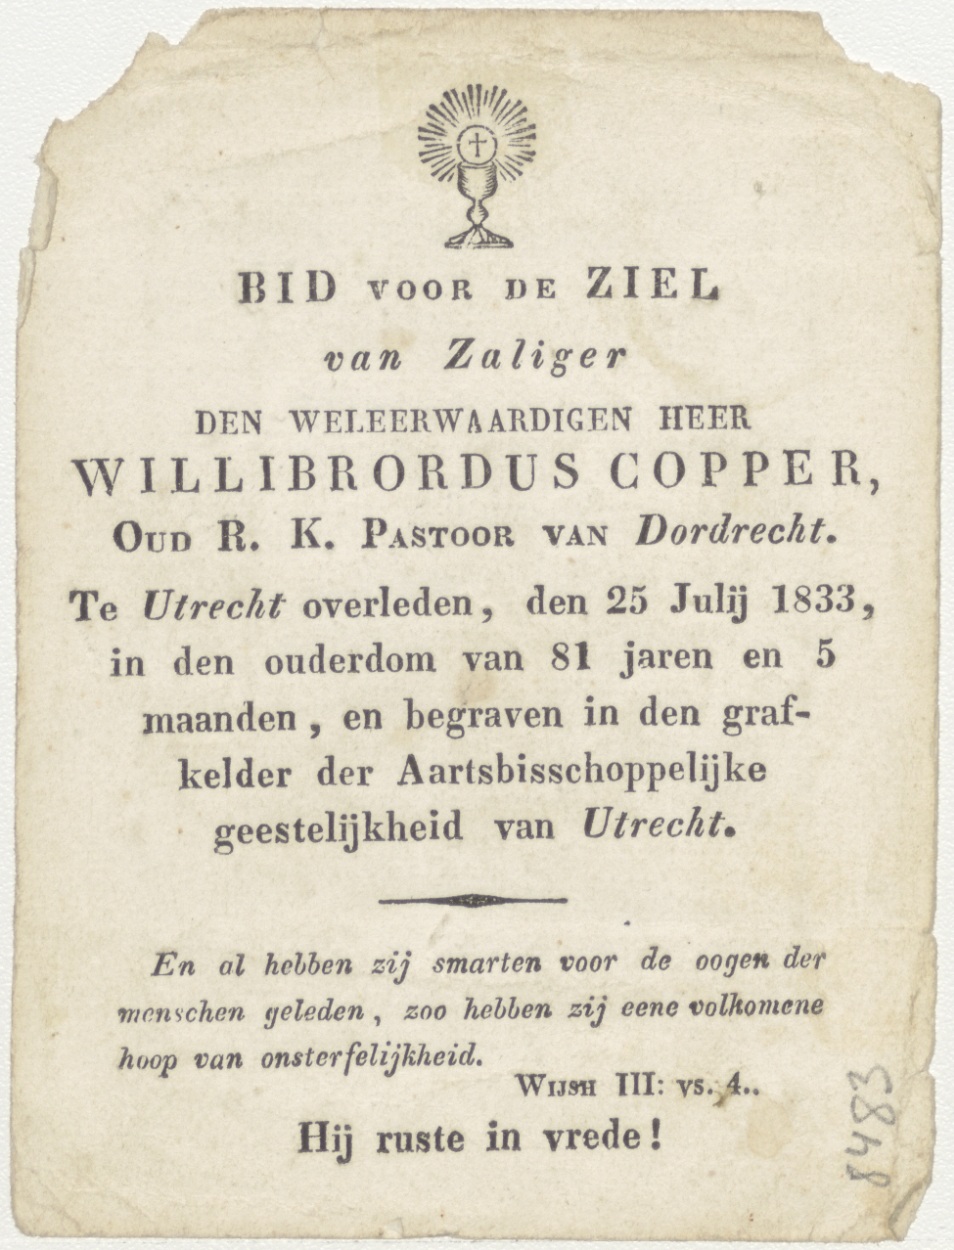 BID VOOR DE ZIEL
van Zaliger
DEN WELEERWAARDIGEN HEER
WILLIBRORDUS COPPER,
OUD R. K. PASTOOR VAN Dordrecht.
Te Utrecht overleden, den 25 Julij 1833,
in den ouderdom van 81 jaren en 5
maanden, en begraven in den graf-
kelder der Aartsbisschoppelijke
geestelijkheid van Utrecht.
En al hebben zij smarten voor de oogen der
menschen geleden, zoo hebben zij eene volkomene
hoop van onsterfelijkheid.
WIJSH III: vs. 4..
Hij ruste in vrede!
8483